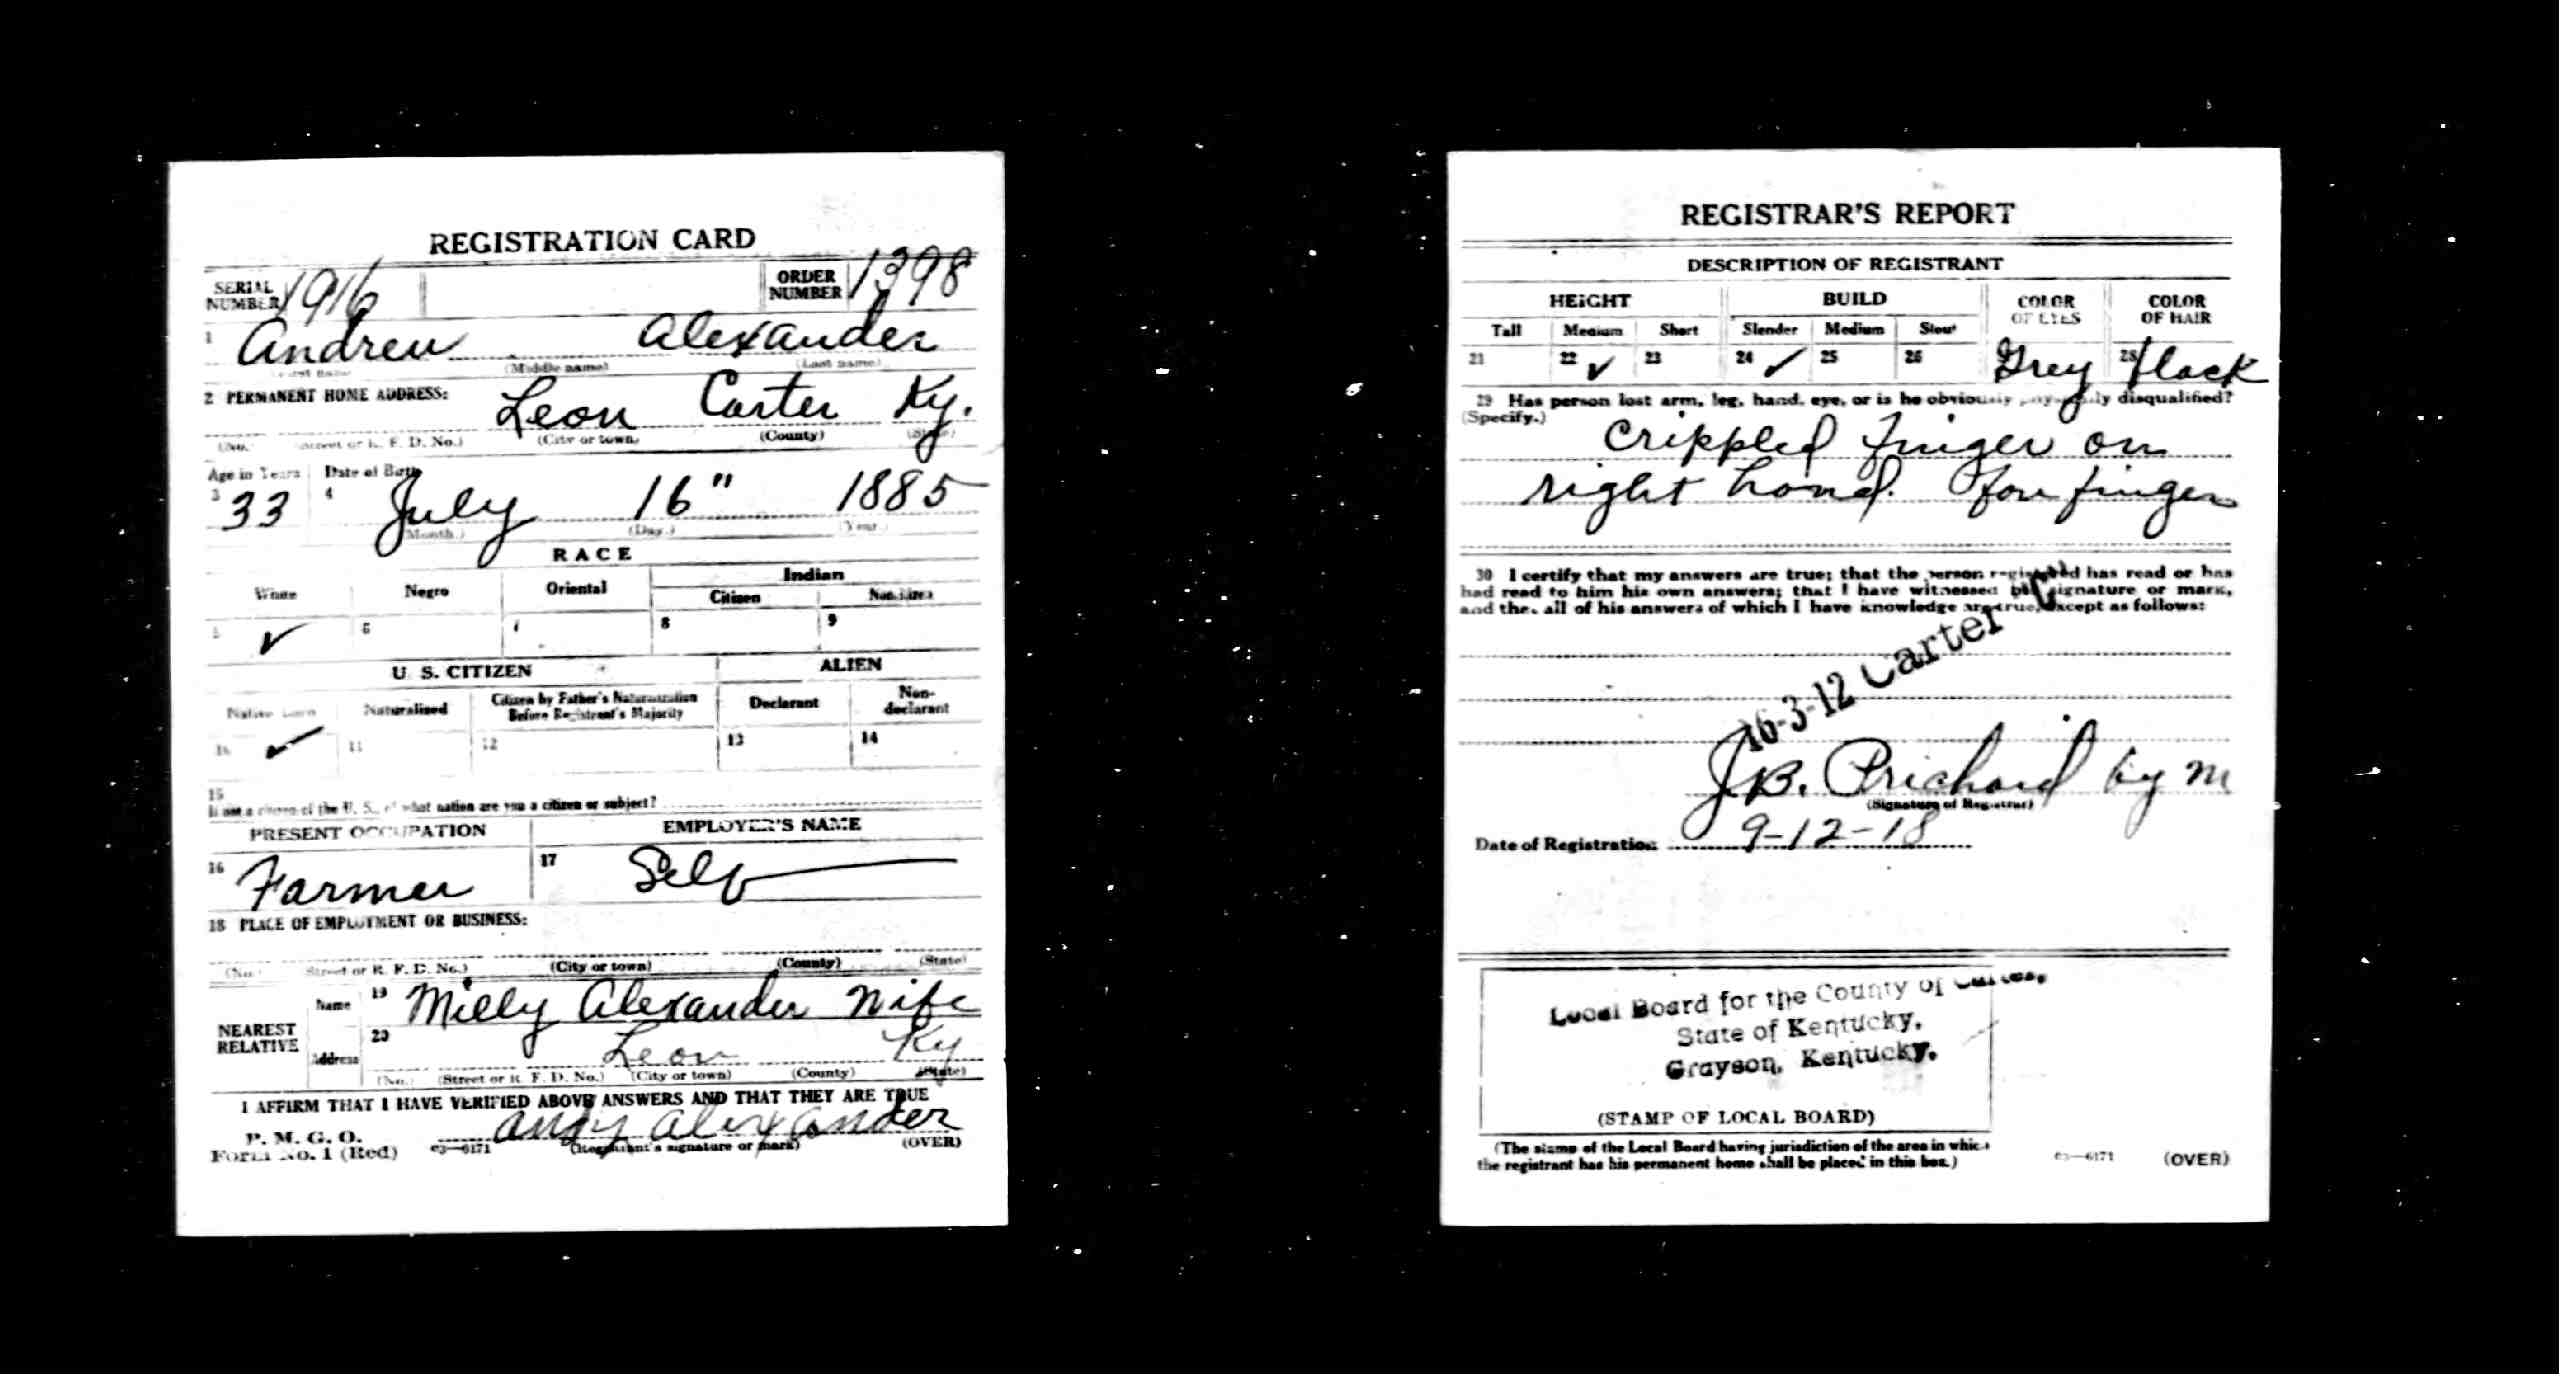 REGISTRATION CARD
SERIAL NUMBER 1916 ORDER NUMBER 1398
1 Andrew Alexander
(First name) (Middle name) (Last name)
2 PERMANENT HOME ADDRESS:
Leon Carter Ky.
(No.) (Street or R. F. D. No.) (City or town) (County) (State)
Age in Years Date of Birth
3 33 4 July 16" 1885
(Month.) (Day.) (Year.)
RACE
White Negro Oriental Indian
Citizen Noncitizen
5 ✓ 6 7 8 9
U. S. CITIZEN ALIEN
Native Born Naturalized Citizen by Father's Naturalization Before Registrant's Majority Declarant Non-declarant
10 ✓ 11 12 13 14
15
If not a citizen of the U. S., of what nation are you a citizen or subject?
PRESENT OCCUPATION EMPLOYER'S NAME
16 Farmer 17 Self
18 PLACE OF EMPLOYMENT OR BUSINESS:
(No.) (Street or R. F. D. No.) (City or town) (County) (State)
NEAREST RELATIVE
Name 19 Milly Alexander Wife
Address 20 Leon Ky
(No.) (Street or R. F. D. No.) (City or town) (County) (State)
I AFFIRM THAT I HAVE VERIFIED ABOVE ANSWERS AND THAT THEY ARE TRUE
P. M. G. O.
Form No. 1 (Red) 03—6171 Andy Alexander
(Registrant's signature or mark) (OVER)
REGISTRAR'S REPORT
DESCRIPTION OF REGISTRANT
HEIGHT BUILD COLOR OF EYES COLOR OF HAIR
Tall Medium Short Slender Medium Stout
21 22 ✓ 23 24 ✓ 25 26 Grey 28
29 Has person lost arm, leg, hand, eye, or is he obviously physically disqualified?
(Specify.)
Crippled finger on
right hand. finger
30 I certify that my answers are true; that the person registered has read or has
had read to him his own answers; that I have witnessed his signature or mark,
and that all of his answers of which I have knowledge are true, except as follows:
16-3-12 Carter C
J.B. Prichard by M
(Signature of Registrar)
Date of Registration 9-12-18
Local Board for the County of Carter,
State of Kentucky,
Grayson, Kentucky.
(STAMP OF LOCAL BOARD)
(The stamp of the Local Board having jurisdiction of the area in which
the registrant has his permanent home shall be placed in this box.)
03—6171 (OVER)